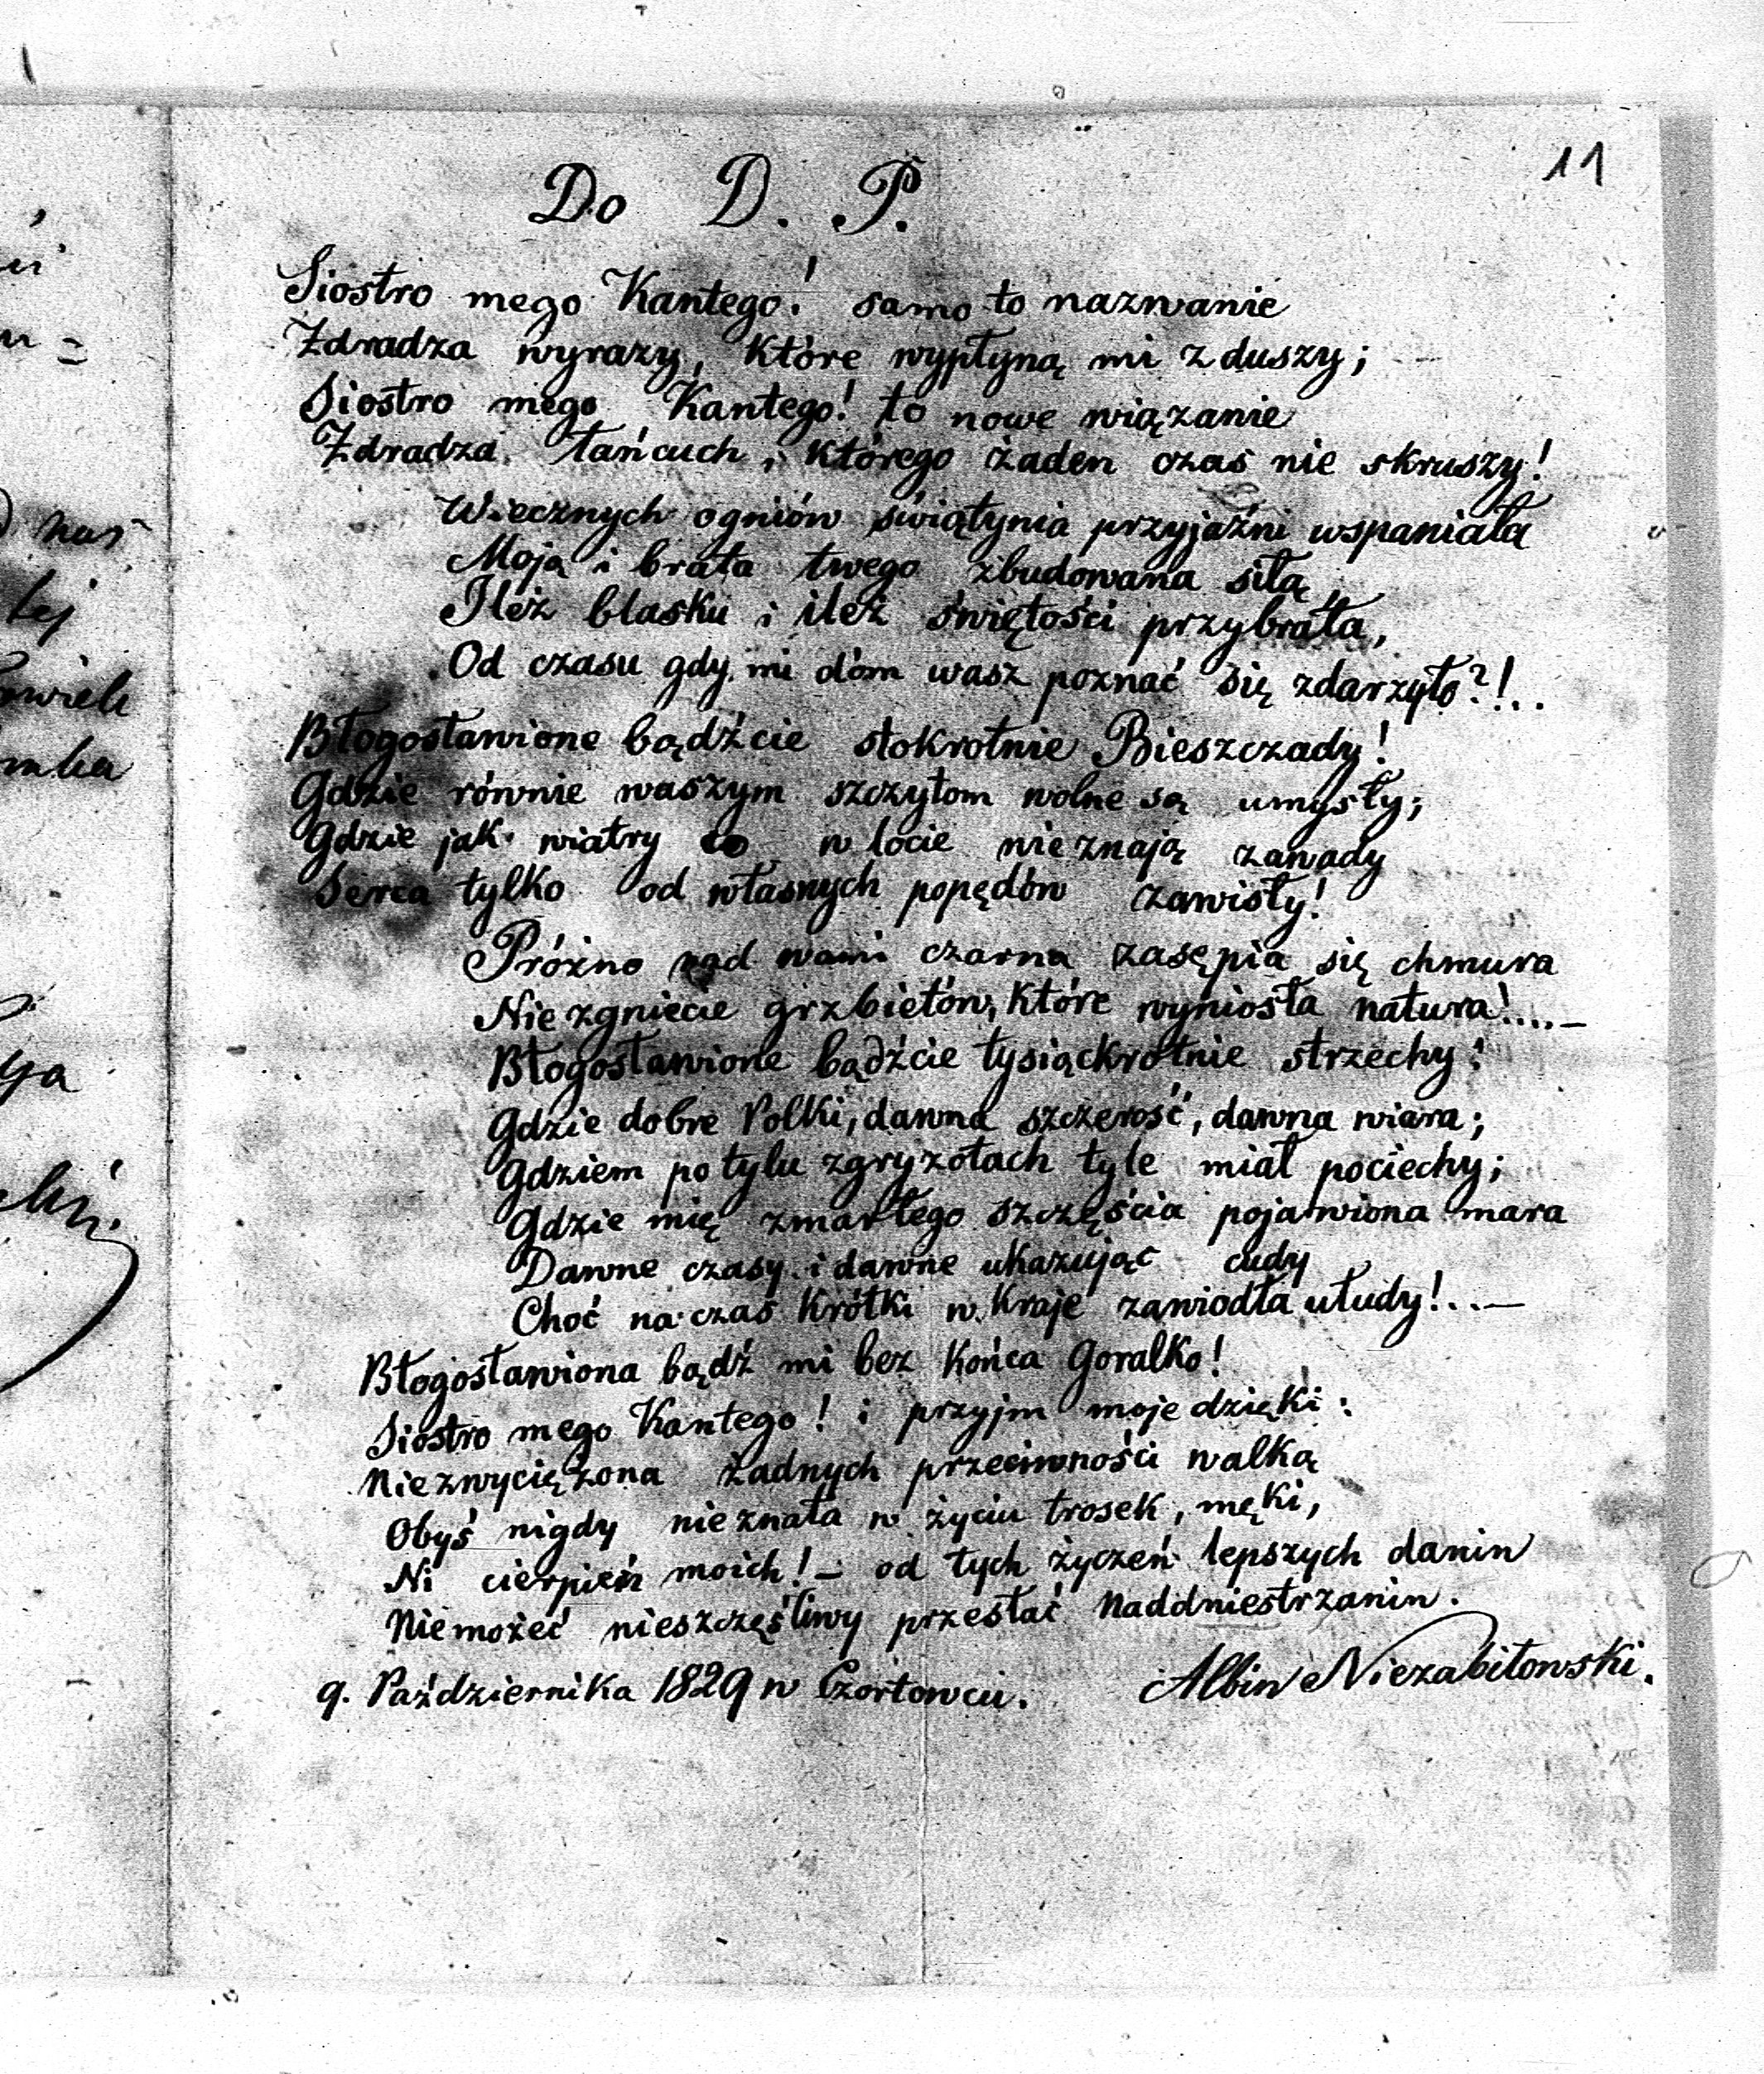 11
Do D. P.
Siostro mego Kantego! samo to nazwanie
Zdradza wyrazy, które wypłyną mi z duszy;
Siostro mego Kantego! to nowe wiązanie
Zdradza łańcuch, którego żaden czas nie skruszy!
Wiecznych ogniów świątynia przyjaźni wspaniała
Moją i brata twego zbudowana siłą,
Ileż blasku i ileż świętości przybrała,
Od czasu gdy mi dóm wasz poznać się zdarzyło?!..
Błogosławione bądźcie stokrotnie Bieszczady!
Gdzie równie waszym szczytom wolne są umysły;
Gdzie jak wiatry co w locie nieznają zawady
Serca tylko od własnych popędów zawisły!
Próżno nad wami czarna zasępia się chmura
Niezgniecie grzbietów, które wyniosła natura!....–
Błogosławione bądźcie tysiąckrotnie strzechy!
Gdzie dobre Polki, dawna szczerość, dawna wiara;
Gdziem po tylu zgryzotach tyle miał pociechy;
Gdzie mię zmarłego szczęścia pojawiona mara
Dawne czasy i dawne ukazując cudy
Choć na czas krótki w kraje zawiodła ułudy!..—
Błogosławiona bądź mi bez końca Goralko!
Siostro mego Kantego! i przyjm moje dzięki:
Niezwyciężona żadnych przeciwności walką
Obyś nigdy nieznała w życiu trosek, męki,
Ni cierpień moich!– od tych życzeń lepszych danin
Niemożeć nieszczęśliwy przesłać Naddniestrzanin.
9. Października 1829 w Czortowcu. Albin Niezabitowski.
nas
tej